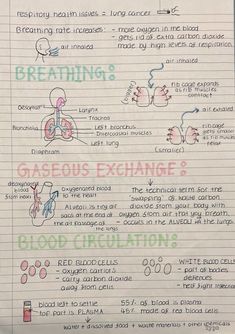 respiratory health issues = lung cancer
Breathing rate increases: - more oxygen in the blood
- gets rid of extra carbon dioxide
made by high levels of respiration.
air inhaled
BREATHING:
air inhaled
rib cage expands
as rib muscles
contract
Larynx
Trachea
Left bronchus
Intercostal muscles
Left lung
Bronchiole
Diaphragm
air exhaled
rib cage
gets smaller
as rib muscles
relax
(smaller)
GASEOUS EXCHANGE:
deoxygenated
blood
from heart
Oxygenated blood
to the heart
Alveoli is tiny air
sacs at the end of
the air passage
The technical term for the
"swapping" of waste carbon
dioxide from your body with
oxygen from air that you breath.
- occurs in the ALVEOLI in the lungs
BLOOD CIRCULATION:
RED BLOOD CELLS
- oxygen carriers
- carry carbon dioxide
away from cells
WHITE BLOOD CELLS
- part of bodies
defences
- help fight infection
blood left to settle
top part is PLASMA
55% of blood is plasma
45% made of red blood cells
water + dissolved food + waste materials + other chemicals